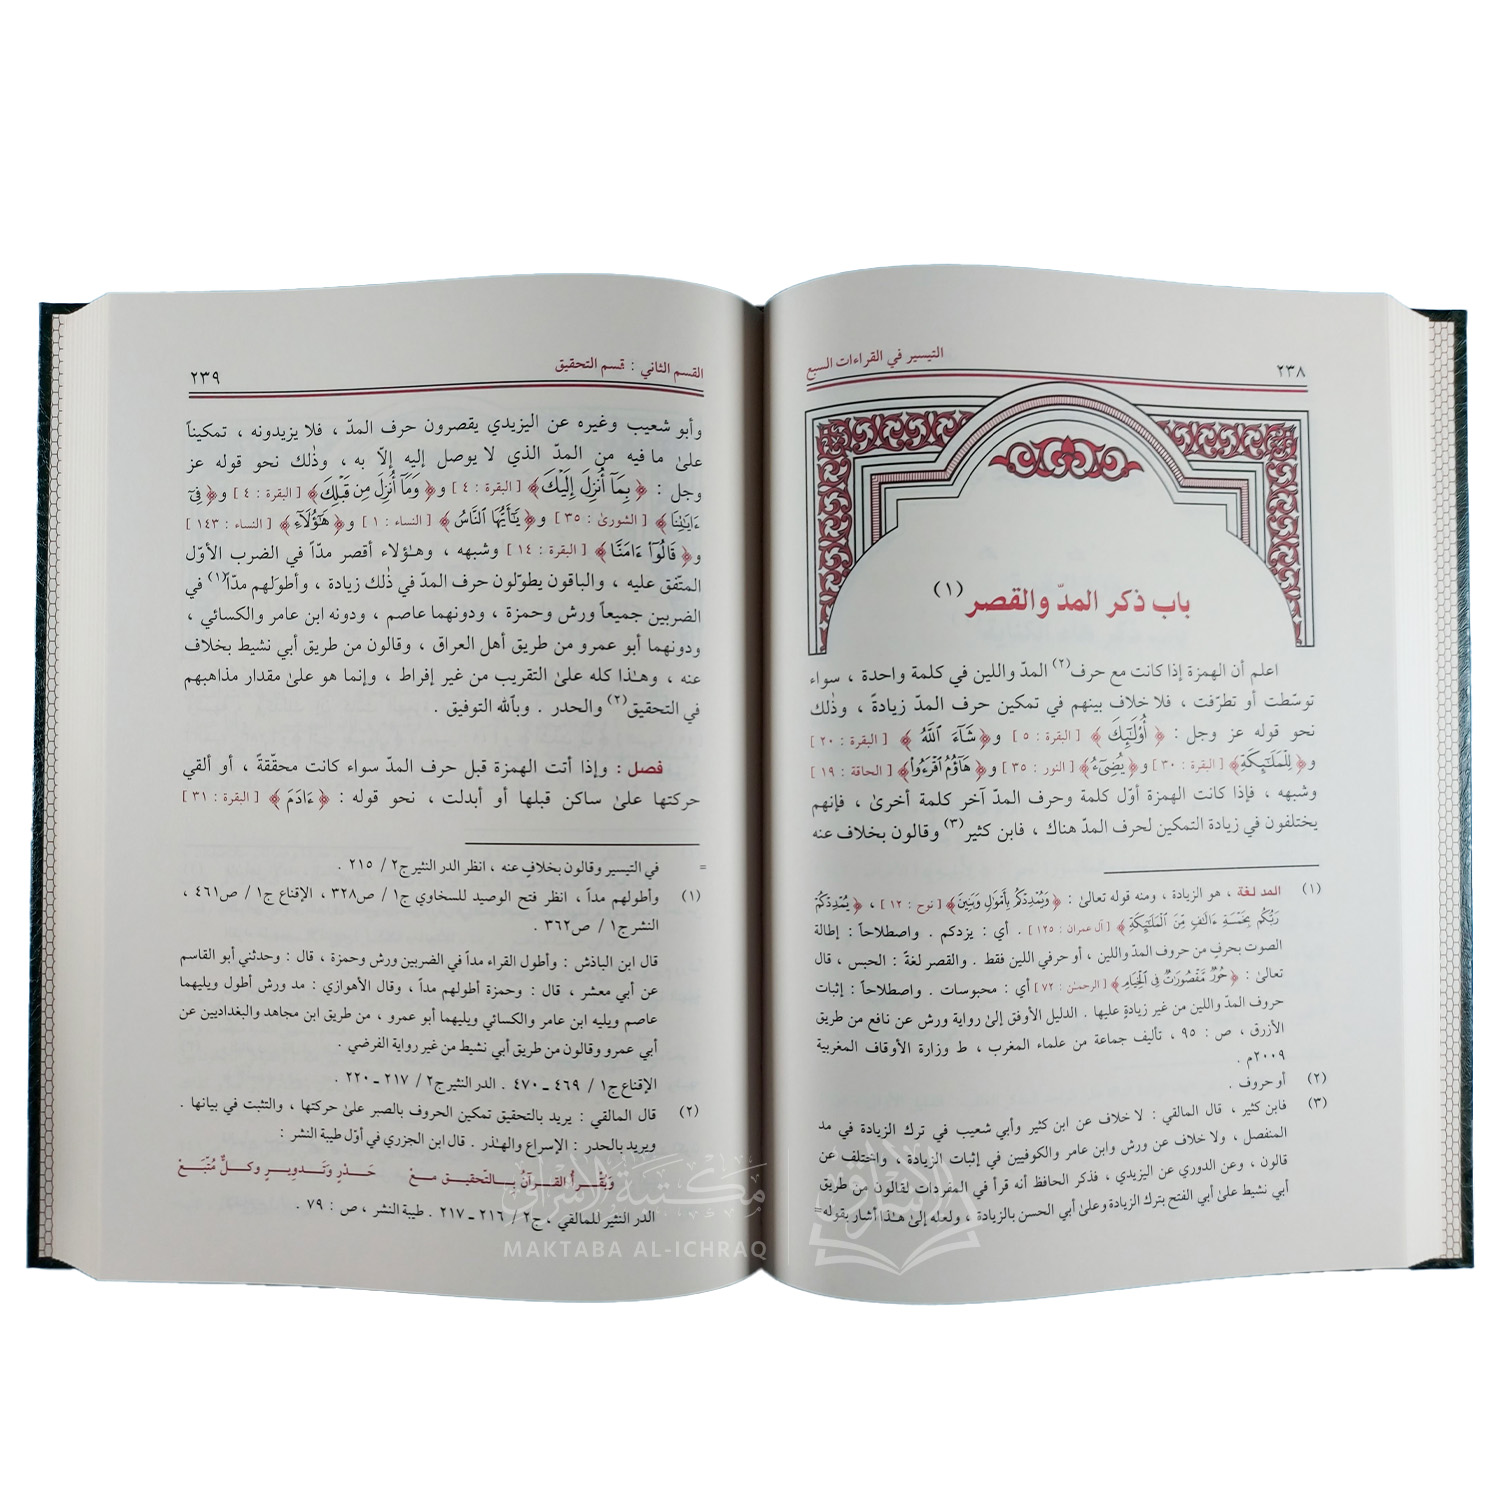 ٢٣٨
التيسير في القراءات السبع
باب ذكر المدّ والقصر(١)
اعلم أن الهمزة إذا كانت مع حرف(٢) المدّ واللين في كلمة واحدة ، سواء
توسّطت أو تطرّفت ، فلا خلاف بينهم في تمكين حرف المدّ زيادةً ، وذٰلك
نحو قوله عز وجل : ﴿ أُوْلَٰٓئِكَ ﴾ [ البقرة : ٥ ] و﴿ شَآءَ ٱللَّهُ ﴾ [ البقرة : ٢٠ ]
و﴿ لِلْمَلَٰٓئِكَةِ﴾ [ البقرة : ٣٠ ] و﴿ يُضِىٓءُ﴾ [ النور : ٣٥ ] و﴿ هَآؤُمُ ٱقْرَءُوا۟﴾ [ الحاقة : ١٩ ]
وشبهه ، فإذا كانت الهمزة أوّل كلمة وحرف المدّ آخر كلمة أخرىٰ ، فإنهم
يختلفون في زيادة التمكين لحرف المدّ هناك ، فابن كثير(٣) وقالون بخلاف عنه
(١) المد لغة ، هو الزيادة ، ومنه قوله تعالىٰ : ﴿ وَيُمْدِدْكُم بِأَمْوَٰلٍ وَبَنِينَ﴾ [ نوح : ١٢ ] ، ﴿ يُمْدِدْكُمْ
رَبُّكُم بِخَمْسَةِ ءَالَٰفٍ مِّنَ ٱلْمَلَٰٓئِكَةِ ﴾ [ آل عمران : ١٢٥ ] . أي : يزدكم . واصطلاحاً : إطالة
الصوت بحرفٍ من حروف المدّ واللين ، أو حرفي اللين فقط . والقصر لغةً : الحبس ، قال
تعالىٰ : ﴿ حُورٌ مَّقْصُورَٰتٌ فِى ٱلْخِيَامِ ﴾ [ الرحمن : ٧٢ ] أي : محبوسات . واصطلاحاً : إثبات
حروف المدّ واللين من غير زيادةٍ عليها . الدليل الأوفق إلىٰ رواية ورش عن نافع من طريق
الأزرق ، ص : ٩٥ ، تأليف جماعة من علماء المغرب ، ط وزارة الأوقاف المغربية
٢٠٠٩م .
(٢) أو حروف .
(٣) فابن كثير ، قال المالقي : لا خلاف عن ابن كثير وأبي شعيب في ترك الزيادة في مد
المنفصل ، ولا خلاف عن ورش وابن عامر والكوفيين في إثبات الزيادة ، واختلف عن
قالون ، وعن الدوري عن اليزيدي ، فذكر الحافظ أنه قرأ في المفردات لقالون من طريق
أبي نشيط علىٰ أبي الفتح بترك الزيادة وعلىٰ أبي الحسن بالزيادة ، ولعله إلىٰ هٰذا أشار بقوله=
القسم الثاني : قسم التحقيق
٢٣٩
وأبو شعيب وغيره عن اليزيدي يقصرون حرف المدّ ، فلا يزيدونه ، تمكيناً
علىٰ ما فيه من المدّ الذي لا يوصل إليه إلاّ به ، وذٰلك نحو قوله عز
وجل : ﴿ بِمَآ أُنزِلَ إِلَيْكَ﴾ [ البقرة : ٤ ] و﴿ وَمَآ أُنزِلَ مِن قَبْلِكَ﴾ [ البقرة : ٤ ] و﴿ فِىٓ
ءَايَٰتِنَا ﴾ [ الشورىٰ : ٣٥ ] و﴿ يَٰٓأَيُّهَا ٱلنَّاسُ ﴾ [ النساء : ١ ] و﴿ هَٰٓؤُلَآءِ ﴾ [ النساء : ١٤٣ ]
و﴿ قَالُوٓا۟ ءَامَنَّا ﴾ [ البقرة : ١٤ ] وشبهه ، وهٰؤلاء أقصر مدّاً في الضرب الأوّل
المتّفق عليه ، والباقون يطوّلون حرف المدّ في ذٰلك زيادة ، وأطولَهم مدّاً(١) في
الضربين جميعاً ورش وحمزة ، ودونهما عاصم ، ودونه ابن عامر والكسائي ،
ودونهما أبو عمرو من طريق أهل العراق ، وقالون من طريق أبي نشيط بخلاف
عنه ، وهٰذا كله علىٰ التقريب من غير إفراط ، وإنما هو علىٰ مقدار مذاهبهم
في التحقيق(٢) والحدر . وبٱلله التوفيق .
فصل : وإذا أتت الهمزة قبل حرف المدّ سواء كانت محقّقةً ، أو ألقي
حركتها علىٰ ساكن قبلها أو أبدلت ، نحو قوله : ﴿ ءَادَمَ ﴾ [ البقرة : ٣١ ]
= في التيسير وقالون بخلافٍ عنه ، انظر الدر النثير ج٢ / ٢١٥ .
(١) وأطولهم مداً ، انظر فتح الوصيد للسخاوي ج١ / ص٣٢٨ ، الإقناع ج١ / ص٤٦١ ،
النشر ج١ / ص٣٦٢ .
قال ابن الباذش : وأطول القراء مداً في الضربين ورش وحمزة ، قال : وحدثني أبو القاسم
عن أبي معشر ، قال : وحمزة أطولهم مداً ، وقال الأهوازي : مد ورش أطول ويليهما
عاصم ويليه ابن عامر والكسائي ويليهما أبو عمرو ، من طريق ابن مجاهد والبغداديين عن
أبي عمرو وقالون من طريق أبي نشيط من غير رواية الفرضي .
الإقناع ج١ / ٤٦٩ ـ ٤٧٠ . الدر النثير ج٢ / ٢١٧ ـ ٢٢٠ .
(٢) قال المالقي : يريد بالتحقيق تمكين الحروف بالصبر علىٰ حركتها ، والتثبت في بيانها .
ويريد بالحدر : الإسراع والهذر . قال ابن الجزري في أوّل طيبة النشر :
وَيُقْرأُ القرآنُ بالتّحقيق معْ حَدْرٍ وَتَدويرٍ وكلٌّ مُتَّبَعْ
الدر النثير للمالقي ، ج٢ / ٢١٦ ـ ٢١٧ . طيبة النشر ، ص : ٧٩ .
مكتبة الإشراق
MAKTABA AL-ICHRAQ
الإشراق